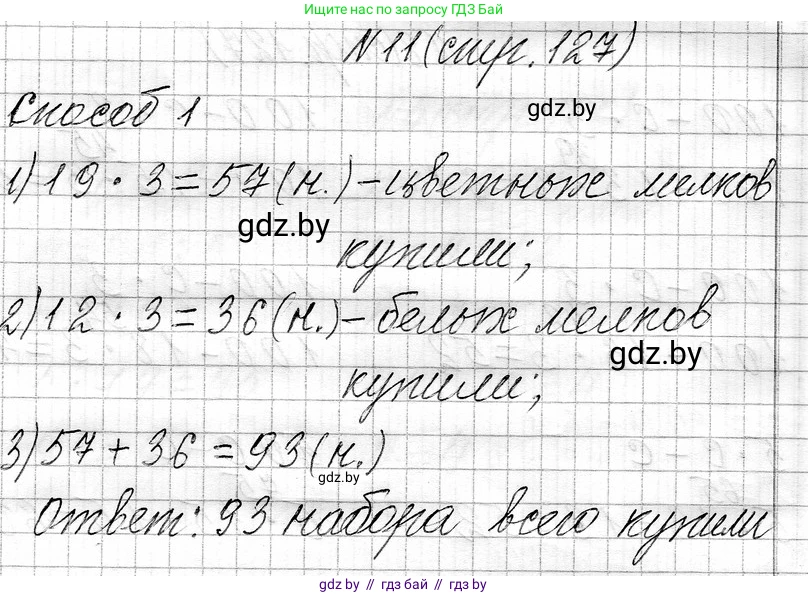 Нашли нас по запросу ГДЗ Бай
№11 (стр. 127)
gdz.by
Способ 1
1) 19 · 3 = 57 (н.) – цветных мелков
gdz.by
купили;
2) 12 · 3 = 36 (н.) – белых мелков
gdz.by
купили;
3) 57 + 36 = 93 (н.)
gdz.by
Ответ: 93 набора всего купили
gdz.by // гдз бай // gdz.by